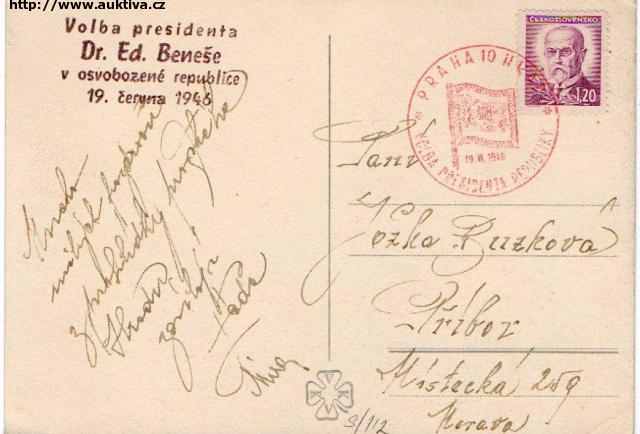 http://www.auktiva.cz
Volba presidenta
Dr. Ed. Beneše
v osvobozené republice
19. června 1946
ČESKOSLOVENSKO
1.20
PRAHA 10 HRAD
19. VI. 1946
VOLBA PRESIDENTA REPUBLIKY
Paní
Jožka Buzková
Příbor
Místecká 259
Morava
Mnoho
milých
z prohlídky pražského
Hradu
Táda
K V A
S/112